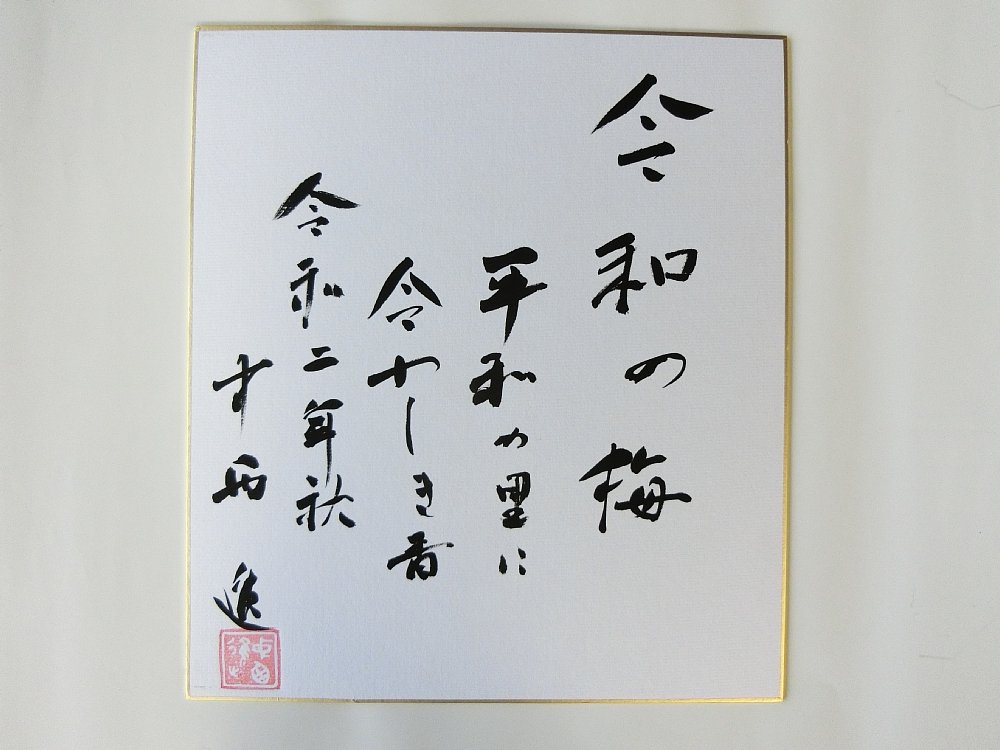 令和の梅
平和の里に
令やしき香
令和二年秋
中西進